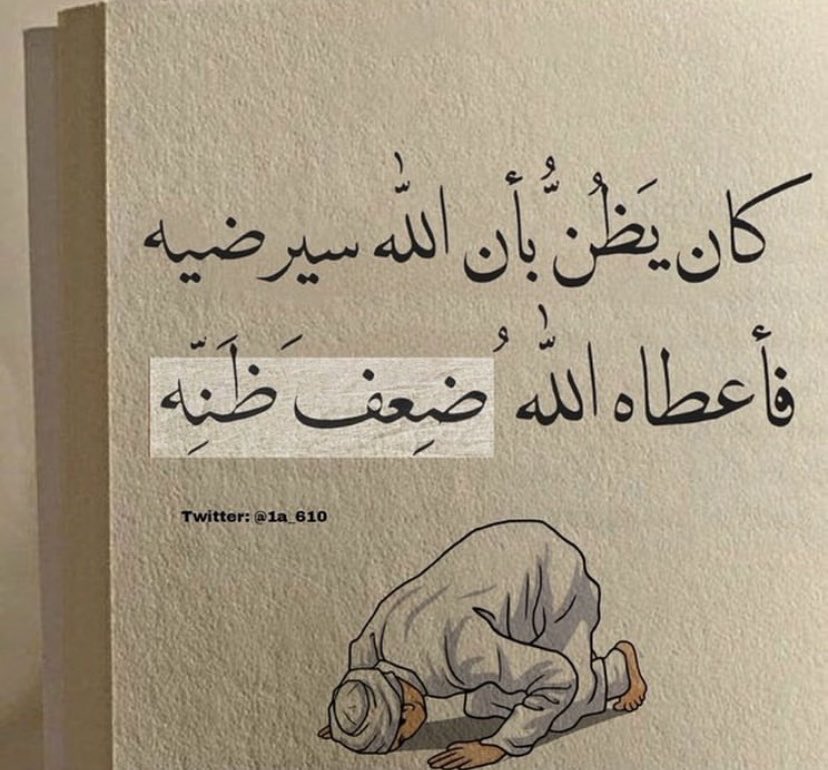 كان يَظُنُّ بأن اللّٰه سيرضيه
فأعطاه اللّٰهُ ضِعفَ ظَنِّه
Twitter: @1a_610